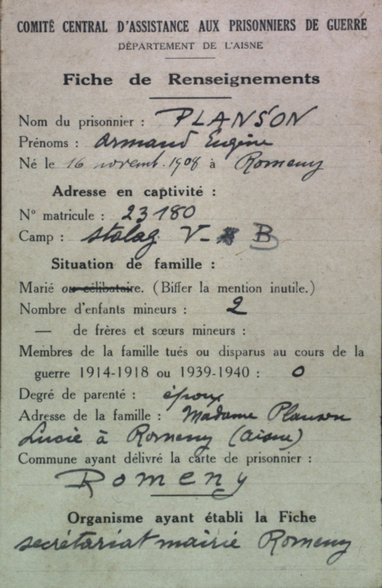 COMITÉ CENTRAL D'ASSISTANCE AUX PRISONNIERS DE GUERRE
DÉPARTEMENT DE L'AISNE
Fiche de Renseignements
Nom du prisonnier : PLANSON
Prénoms : Armand Eugène
Né le 16 novemb. 1908 à Romeny
Adresse en captivité :
N° matricule : 23180
Camp : Stalag V- B
Situation de famille :
Marié ou célibataire. (Biffer la mention inutile.)
Nombre d'enfants mineurs : 2
— de frères et sœurs mineurs :
Membres de la famille tués ou disparus au cours de la
guerre 1914-1918 ou 1939-1940 : 0
Degré de parenté : époux
Adresse de la famille : Madame Planson
Lucie à Romeny (Aisne)
Commune ayant délivré la carte de prisonnier :
Romeny
Organisme ayant établi la Fiche
secrétariat mairie Romeny